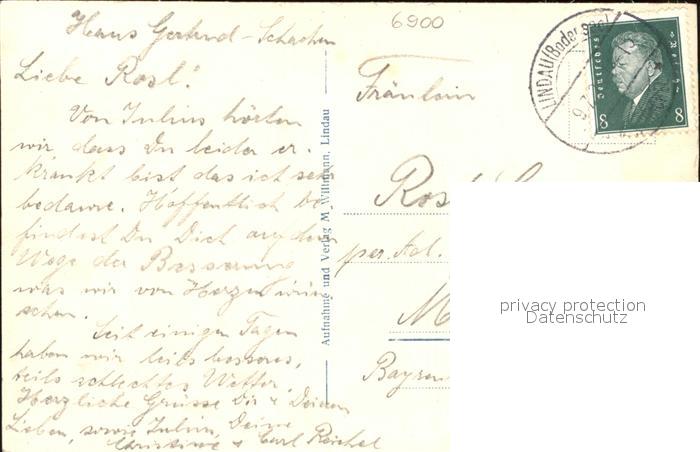 6900
Haus Gertrud - Schachen
Liebe Rosl!
Von Julius hörten
wir dass Du leider er-
krankt bist das ich sehr
bedaure. Hoffentlich be-
findest Du Dich auf dem
Wege der Besserung
was wir von Herzen wün-
schen.
Seit einigen Tagen
haben wir teils besseres,
teils schlechtes Wetter.
Herzliche Grüsse Dir u Deinen
Lieben, sowie Julius, Deine
Christine u Carl Reichel
Aufnahme und Verlag M. Willmann, Lindau
Fräulein
per. Ad.
Bayern
LINDAU (Bodensee)
Deutsches
8 8
privacy protection
Datenschutz